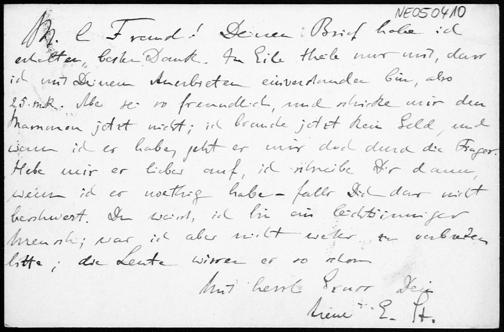 NE050410
L. Freund! Deinen Brief habe ich
erhalten, besten Dank. In Eile theile nur mit, dass
ich mit Deinem Anerbieten einverstanden bin, also
25 mk. Aber sei so freundlich, und schicke mir den
Mammon jetzt nicht; ich brauche jetzt kein Geld, und
wenn ich es habe, geht es mir doch durch die Finger.
Hebe mir es lieber auf, ich schreibe Dir dann,
wenn ich es noethig habe – falls Dich das nicht
beschwert. Du weisst, ich bin ein leichtsinniger
Mensch; was ich aber nicht weiter zu verbreiten
bitte; die Leute wissen es so schon
Mit herzl. Gruss Dein
E. St.